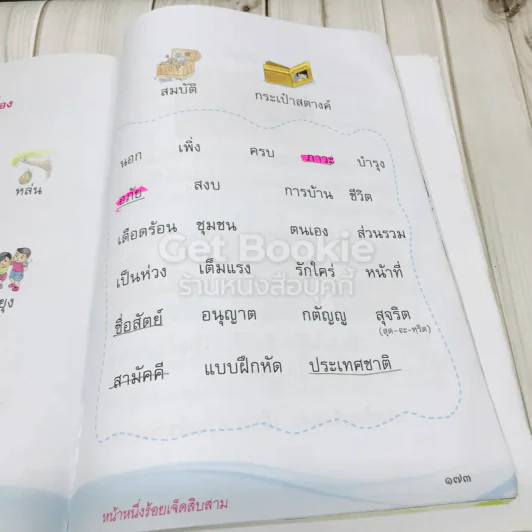 สมบัติ กระเป๋าสตางค์
นอก เพิ่ง ครบ บำรุง
อภัย สงบ การบ้าน ชีวิต
เดือดร้อน ชุมชน ตนเอง ส่วนรวม
เป็นห่วง เต็มแรง รักใคร่ หน้าที่
ซื่อสัตย์ อนุญาต กตัญญู สุจริต
(สุด-จะ-หริด)
สามัคคี แบบฝึกหัด ประเทศชาติ
หน้าหนึ่งร้อยเจ็ดสิบสาม
๑๗๓
หล่น
Get Bookie
ร้านหนังสือบุคกี้